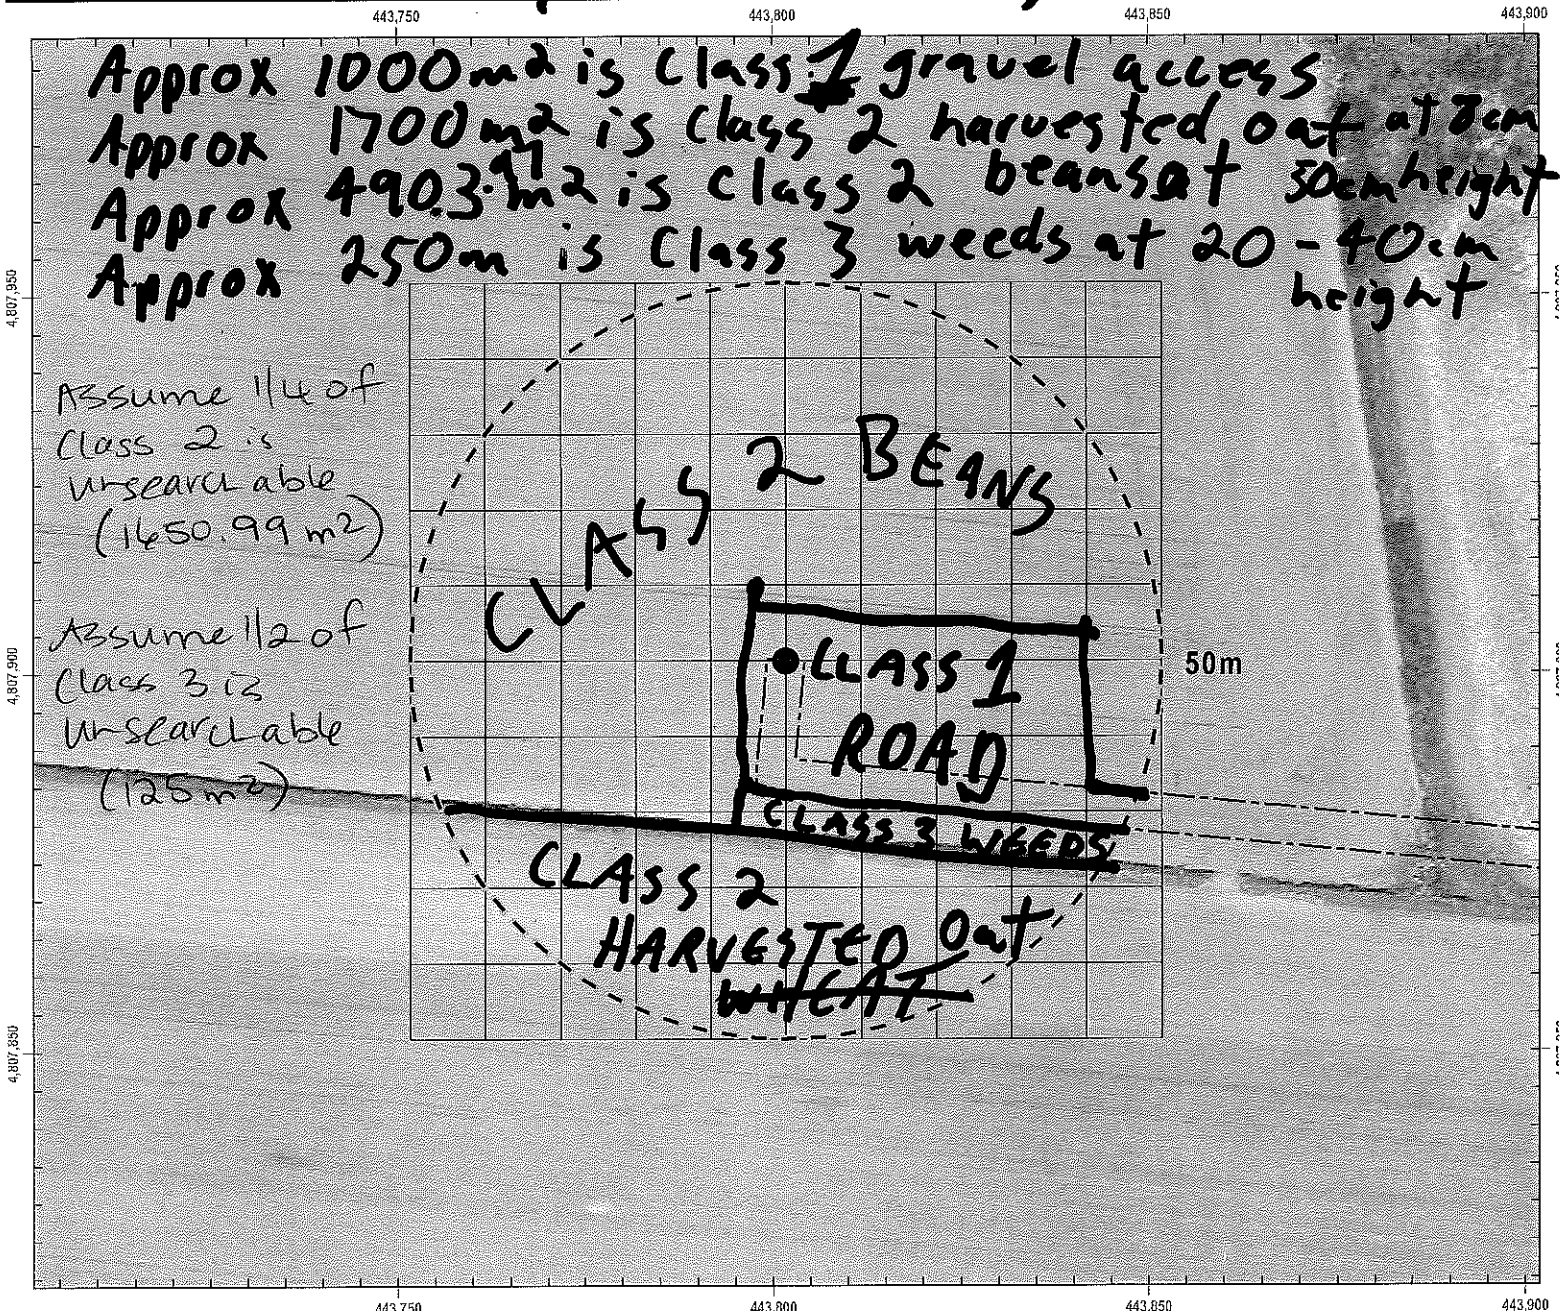 443,750 443,800 443,850 443,900
Approx 1000m2 is Class 1 gravel access
Approx 1700m2 is Class 2 harvested oat at 8cm
Approx 4903.97m2 is Class 2 beans at 30cm height
Approx 250m is Class 3 weeds at 20-40cm
height
4,807,950
Assume 1/4 of
Class 2 is
unsearchable
(1650.99 m2)
CLASS 2 BEANS
Assume 1/2 of
Class 3 is
unsearchable
(125m2)
4,807,900
CLASS 1
ROAD
50m
CLASS 3 WEEDS
CLASS 2
HARVESTED Oat
WHEAT
4,807,850
443,750 443,800 443,850 443,900